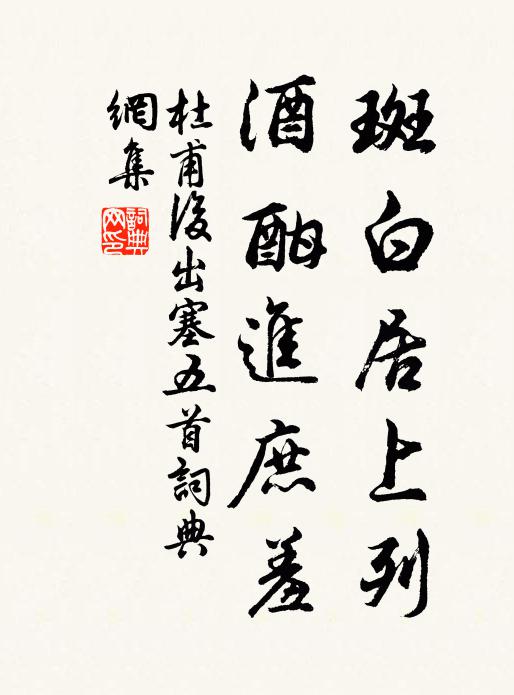 斑白居上列
酒酣進庶羞
杜甫後出塞五首詞典
網集
詞典
网印